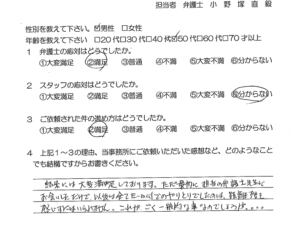 担当者 弁護士 小野塚直毅
性別を教えて下さい。 ☑男性 □女性
年齢を教えて下さい □20代□30代□40代☑50代□60代□70才以上
1 弁護士の応対はどうでしたか。
①大変満足 ②満足 ③普通 ④不満 ⑤大変不満 ⑥分からない
2 スタッフの応対はどうでしたか。
①大変満足 ②満足 ③普通 ④不満 ⑤大変不満 ⑥分からない
3 ご依頼された件の進め方はどうでしたか。
①大変満足 ②満足 ③普通 ④不満 ⑤大変不満 ⑥分からない
4 上記1~3の理由、当事務所にご依頼いただいた感想など、どのようなこと
でも結構ですからお書きください。
結果には大変満足しております。ただ最初に担当の弁護士先生に
お会いしただけで、以後は全てE-mailでのやりとりでしたので、
感じずにはいられません。これがごく一般的な事なのでしょうが。